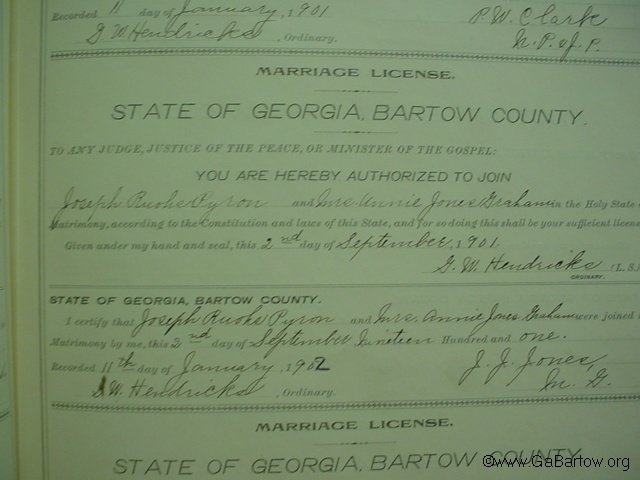 Recorded 11 day of January, 1901 P. W. Clark
G W Hendricks, Ordinary. N. P. of P.
MARRIAGE LICENSE.
STATE OF GEORGIA, BARTOW COUNTY.
TO ANY JUDGE, JUSTICE OF THE PEACE, OR MINISTER OF THE GOSPEL:
YOU ARE HEREBY AUTHORIZED TO JOIN
Joseph Pyron and Mrs Annie Jones Graham in the Holy State
Matrimony, according to the Constitution and laws of this State, and for so doing this shall be your sufficient license
Given under my hand and seal, this 2nd day of September, 1901
G. W. Hendricks (L. S.)
ORDINARY.
STATE OF GEORGIA, BARTOW COUNTY.
I certify that Joseph Pyron and Mrs. Annie Jones Graham were joined
Matrimony by me, this 2nd day of September Nineteen Hundred and one.
Recorded 11th day of January, 1902 J. J. Jones
G. W. Hendricks, Ordinary. M. G.
MARRIAGE LICENSE.
STATE OF GEORGIA, BARTOW COUNTY.
©www.GaBartow.org